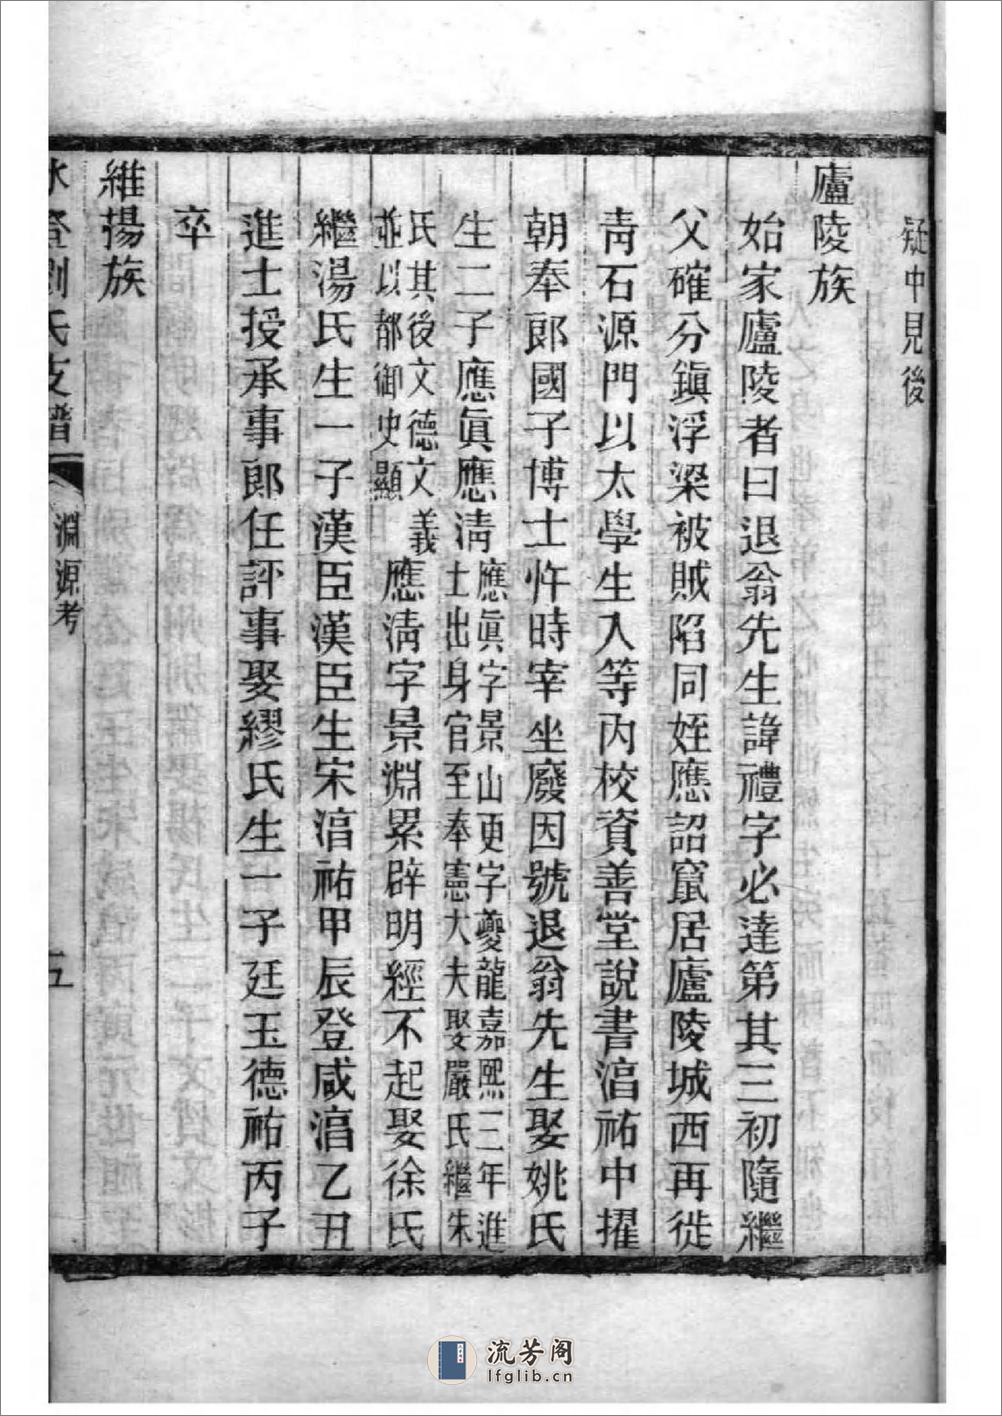 疑中見後
廬陵族
始家廬陵者曰退翁先生諱禮字必達第其三初隨繼
父確分鎮浮梁被賊陷同姪應詔竄居廬陵城西再徙
靑石源門以太學生入等內校資善堂說書湻祐中擢
朝奉郎國子博士忤時宰坐廢因號退翁先生娶姚氏
生二子應眞應淸
應眞字景山更字夔龍嘉熙二年進
士出身官至奉憲大夫娶嚴氏繼朱
氏其後文德文義
並以都御史顯
應淸字景淵累辟明經不起娶徐氏
繼湯氏生一子漢臣漢臣生宋湻祐甲辰登咸湻乙丑
進士授承事郎任評事娶繆氏生一子廷玉德祐丙子
卒
維揚族
劉氏支譜
淵源考
五
流芳阁
lfglib.cn